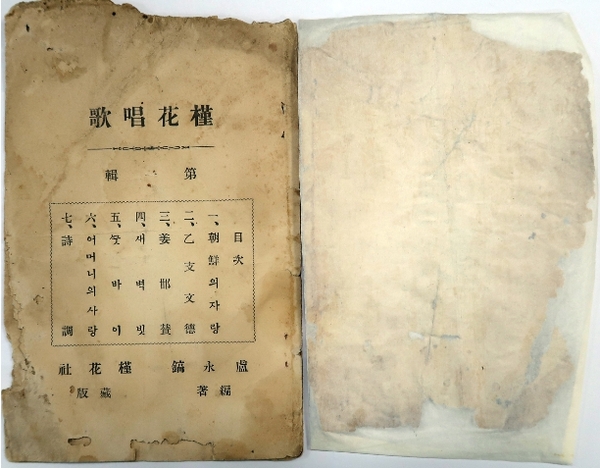 槿花唱歌
第一輯
目次
一、朝鮮의자랑
二、乙支文德
三、姜邯贊
四、새벽빗
五、
六、어머니의사랑
七、詩調
盧永鎬 編著
槿花社 藏版